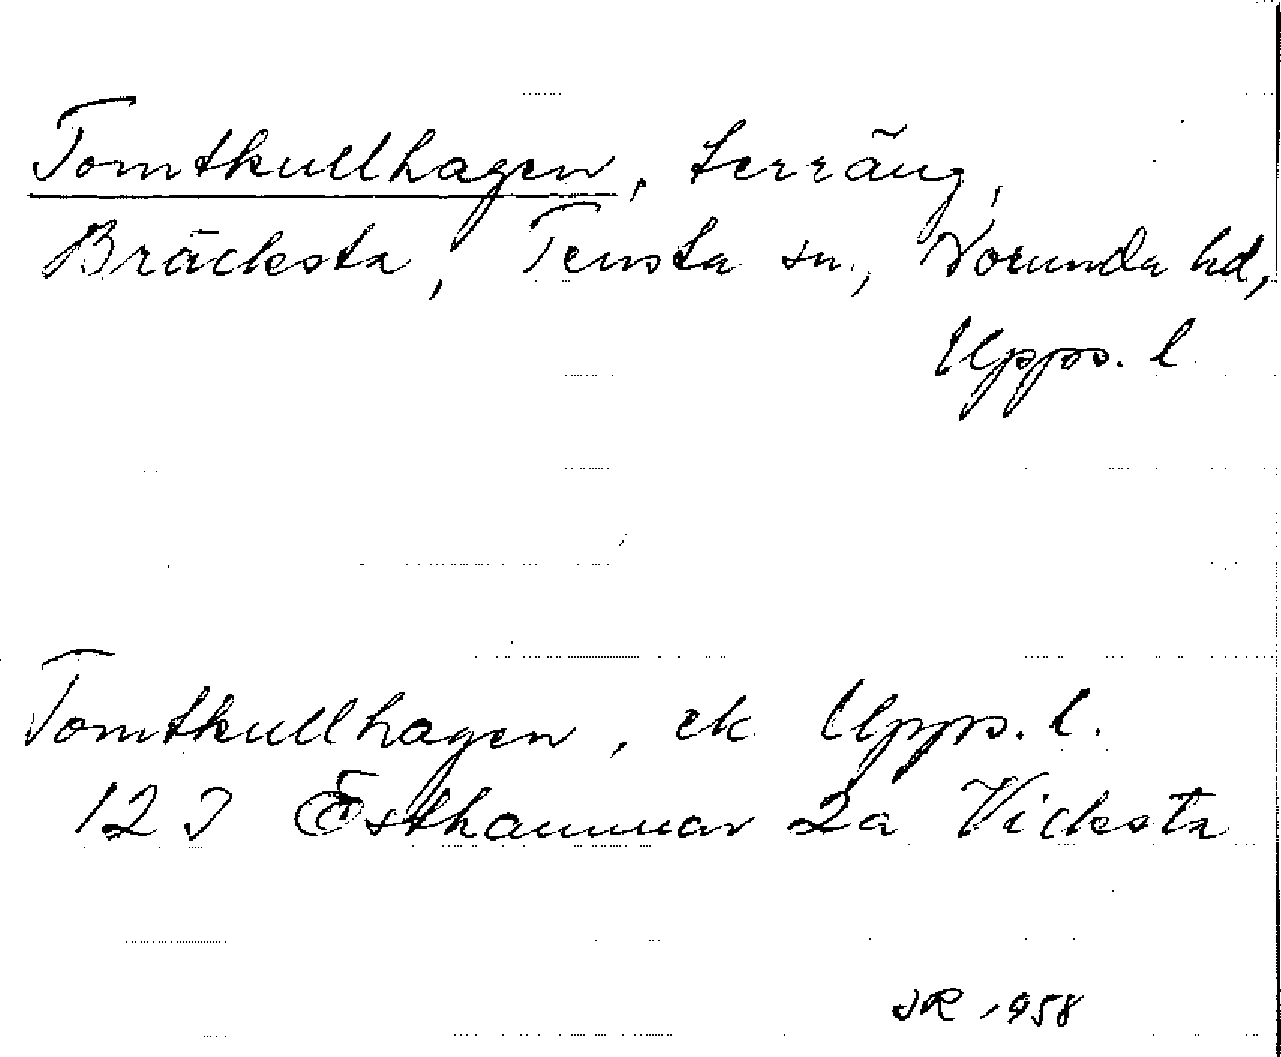 Tomtkullhagen, terräng,
Bräcksta, Tensta sn., Norunda hd,
Upps. l
Tomtkullhagen, ek Upps. l.
12 J Östhammar 2a Vicksta
JR 1958